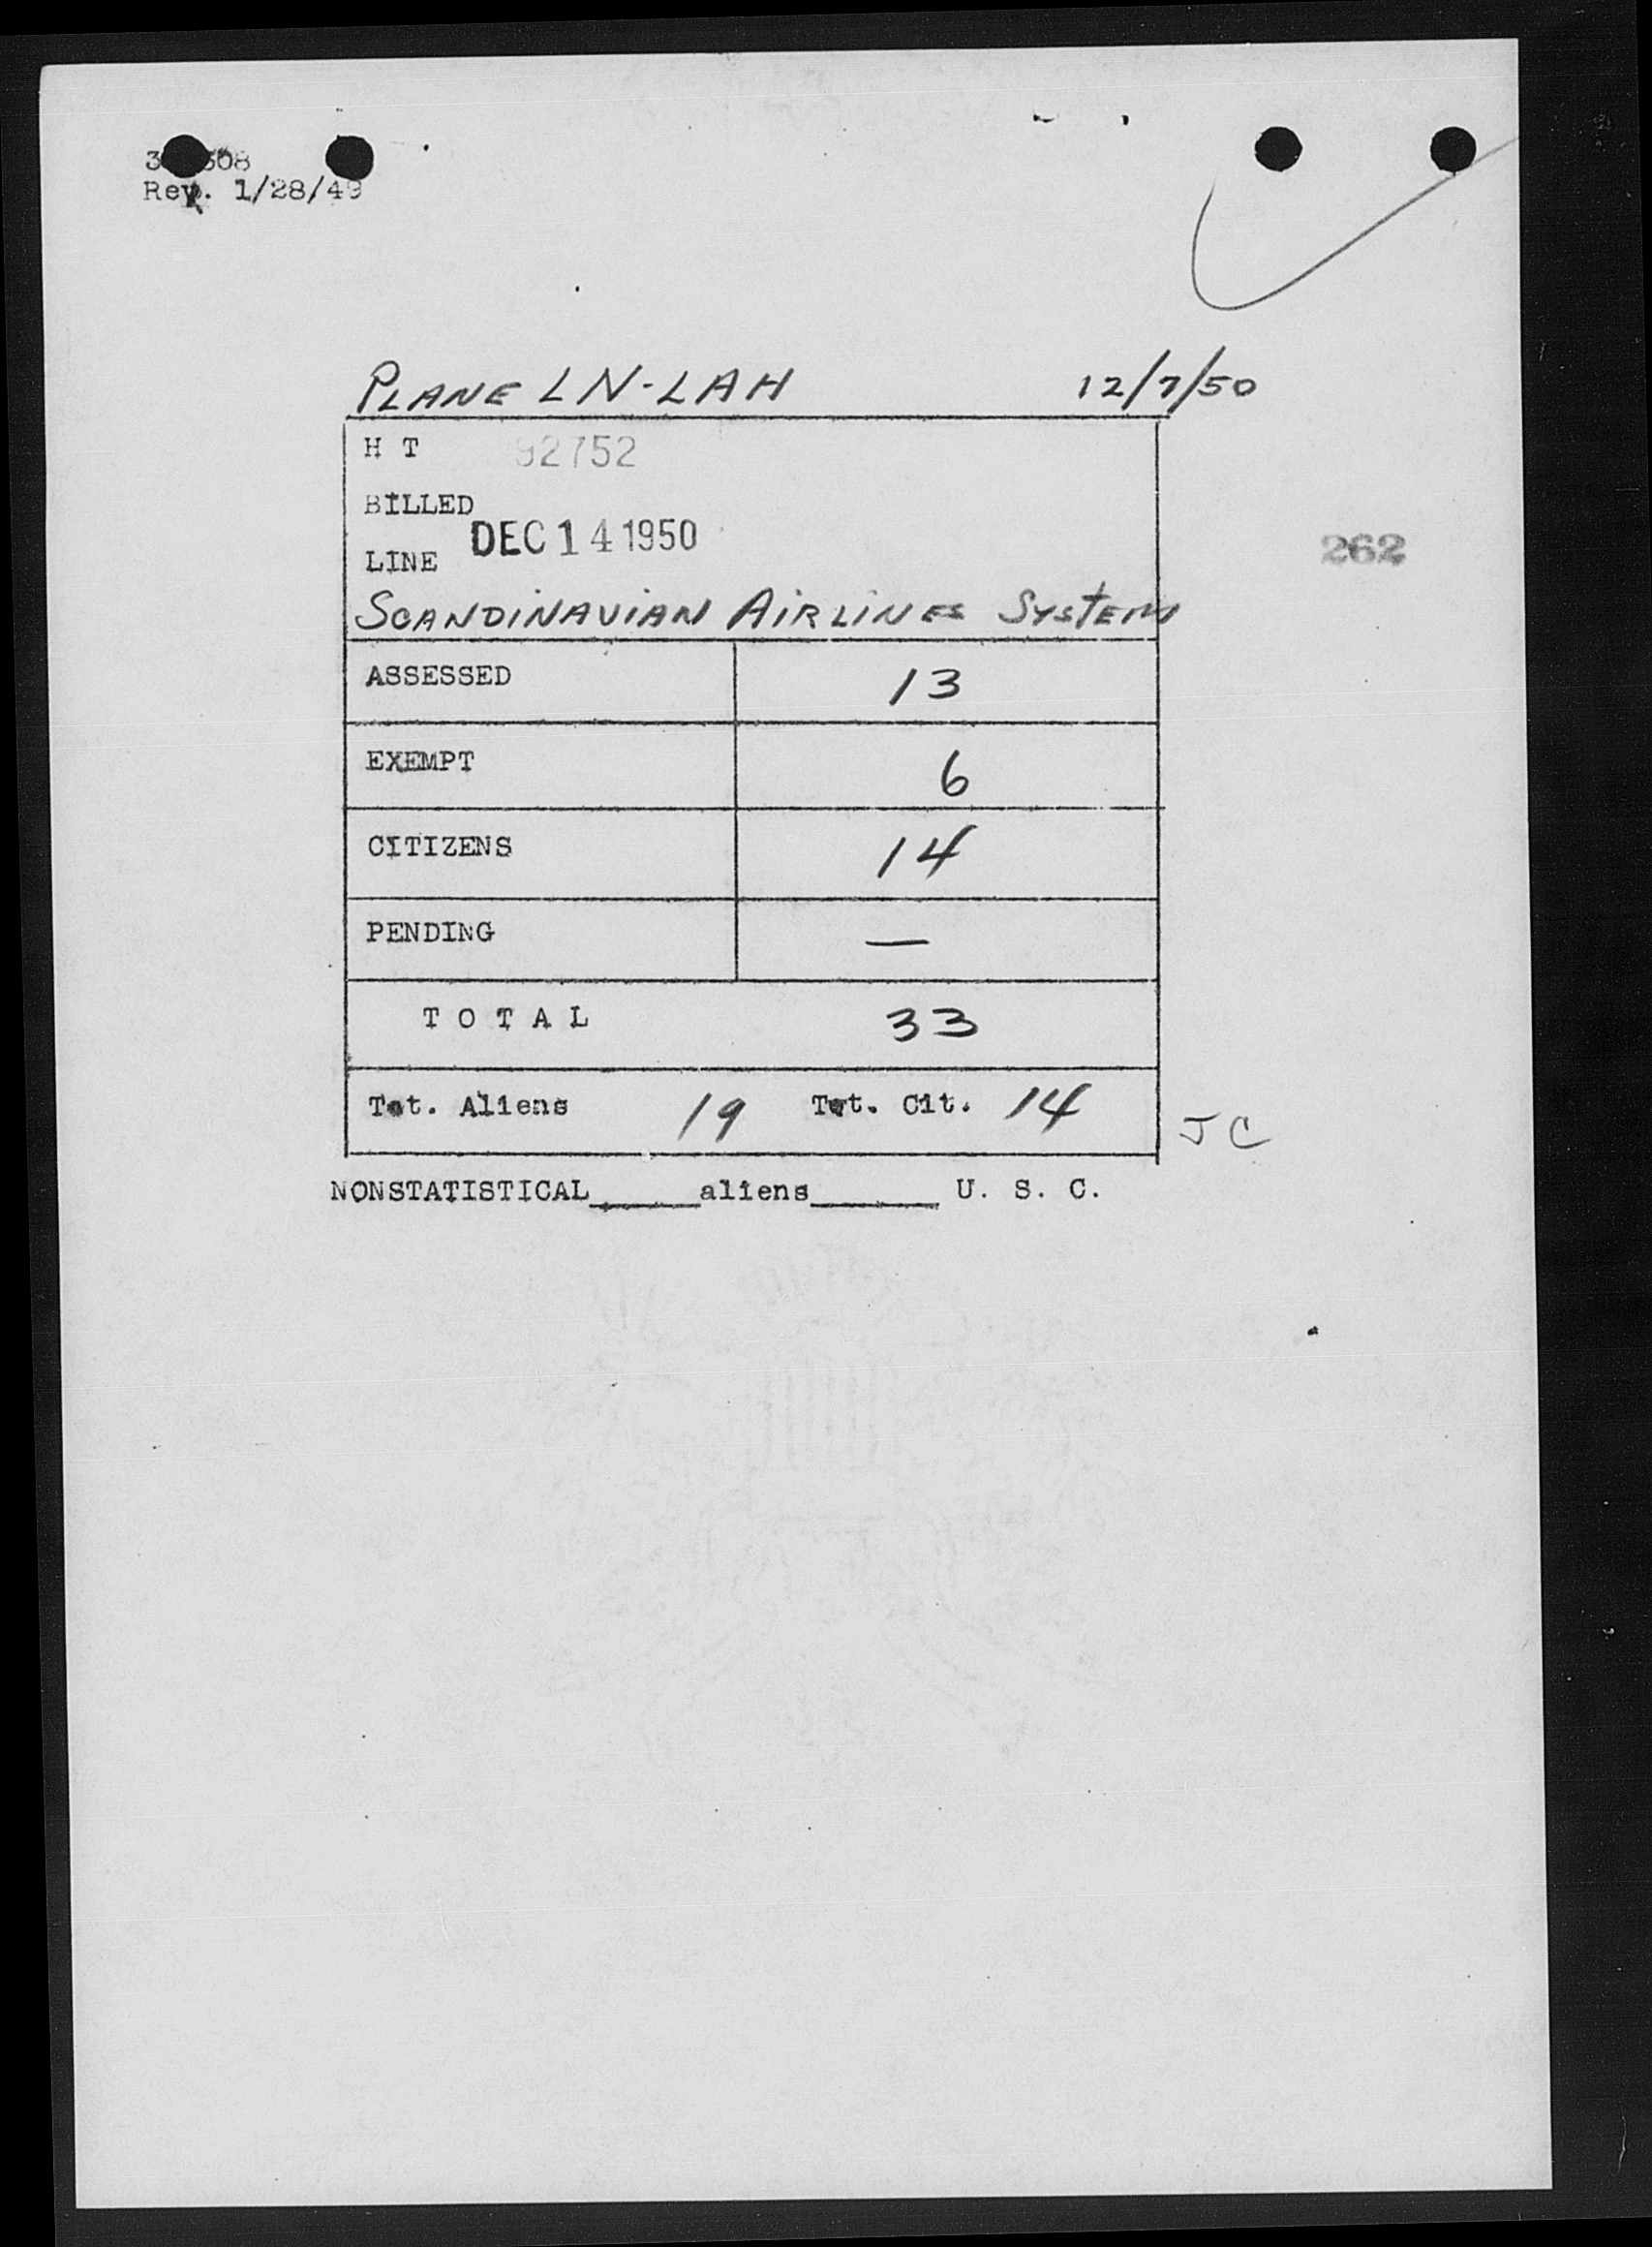 Rev. 1/28/49
PLANE LN-LAH 12/7/50
H T 92752
BILLED
DEC 14 1950
LINE
262
SCANDINAVIAN AIRLINES SYSTEM
ASSESSED 13
EXEMPT 6
CITIZENS 14
PENDING —
T O T A L 33
Tot. Aliens 19 Tot. Cit. 14
JC
NONSTATISTICAL______aliens_______ U. S. C.